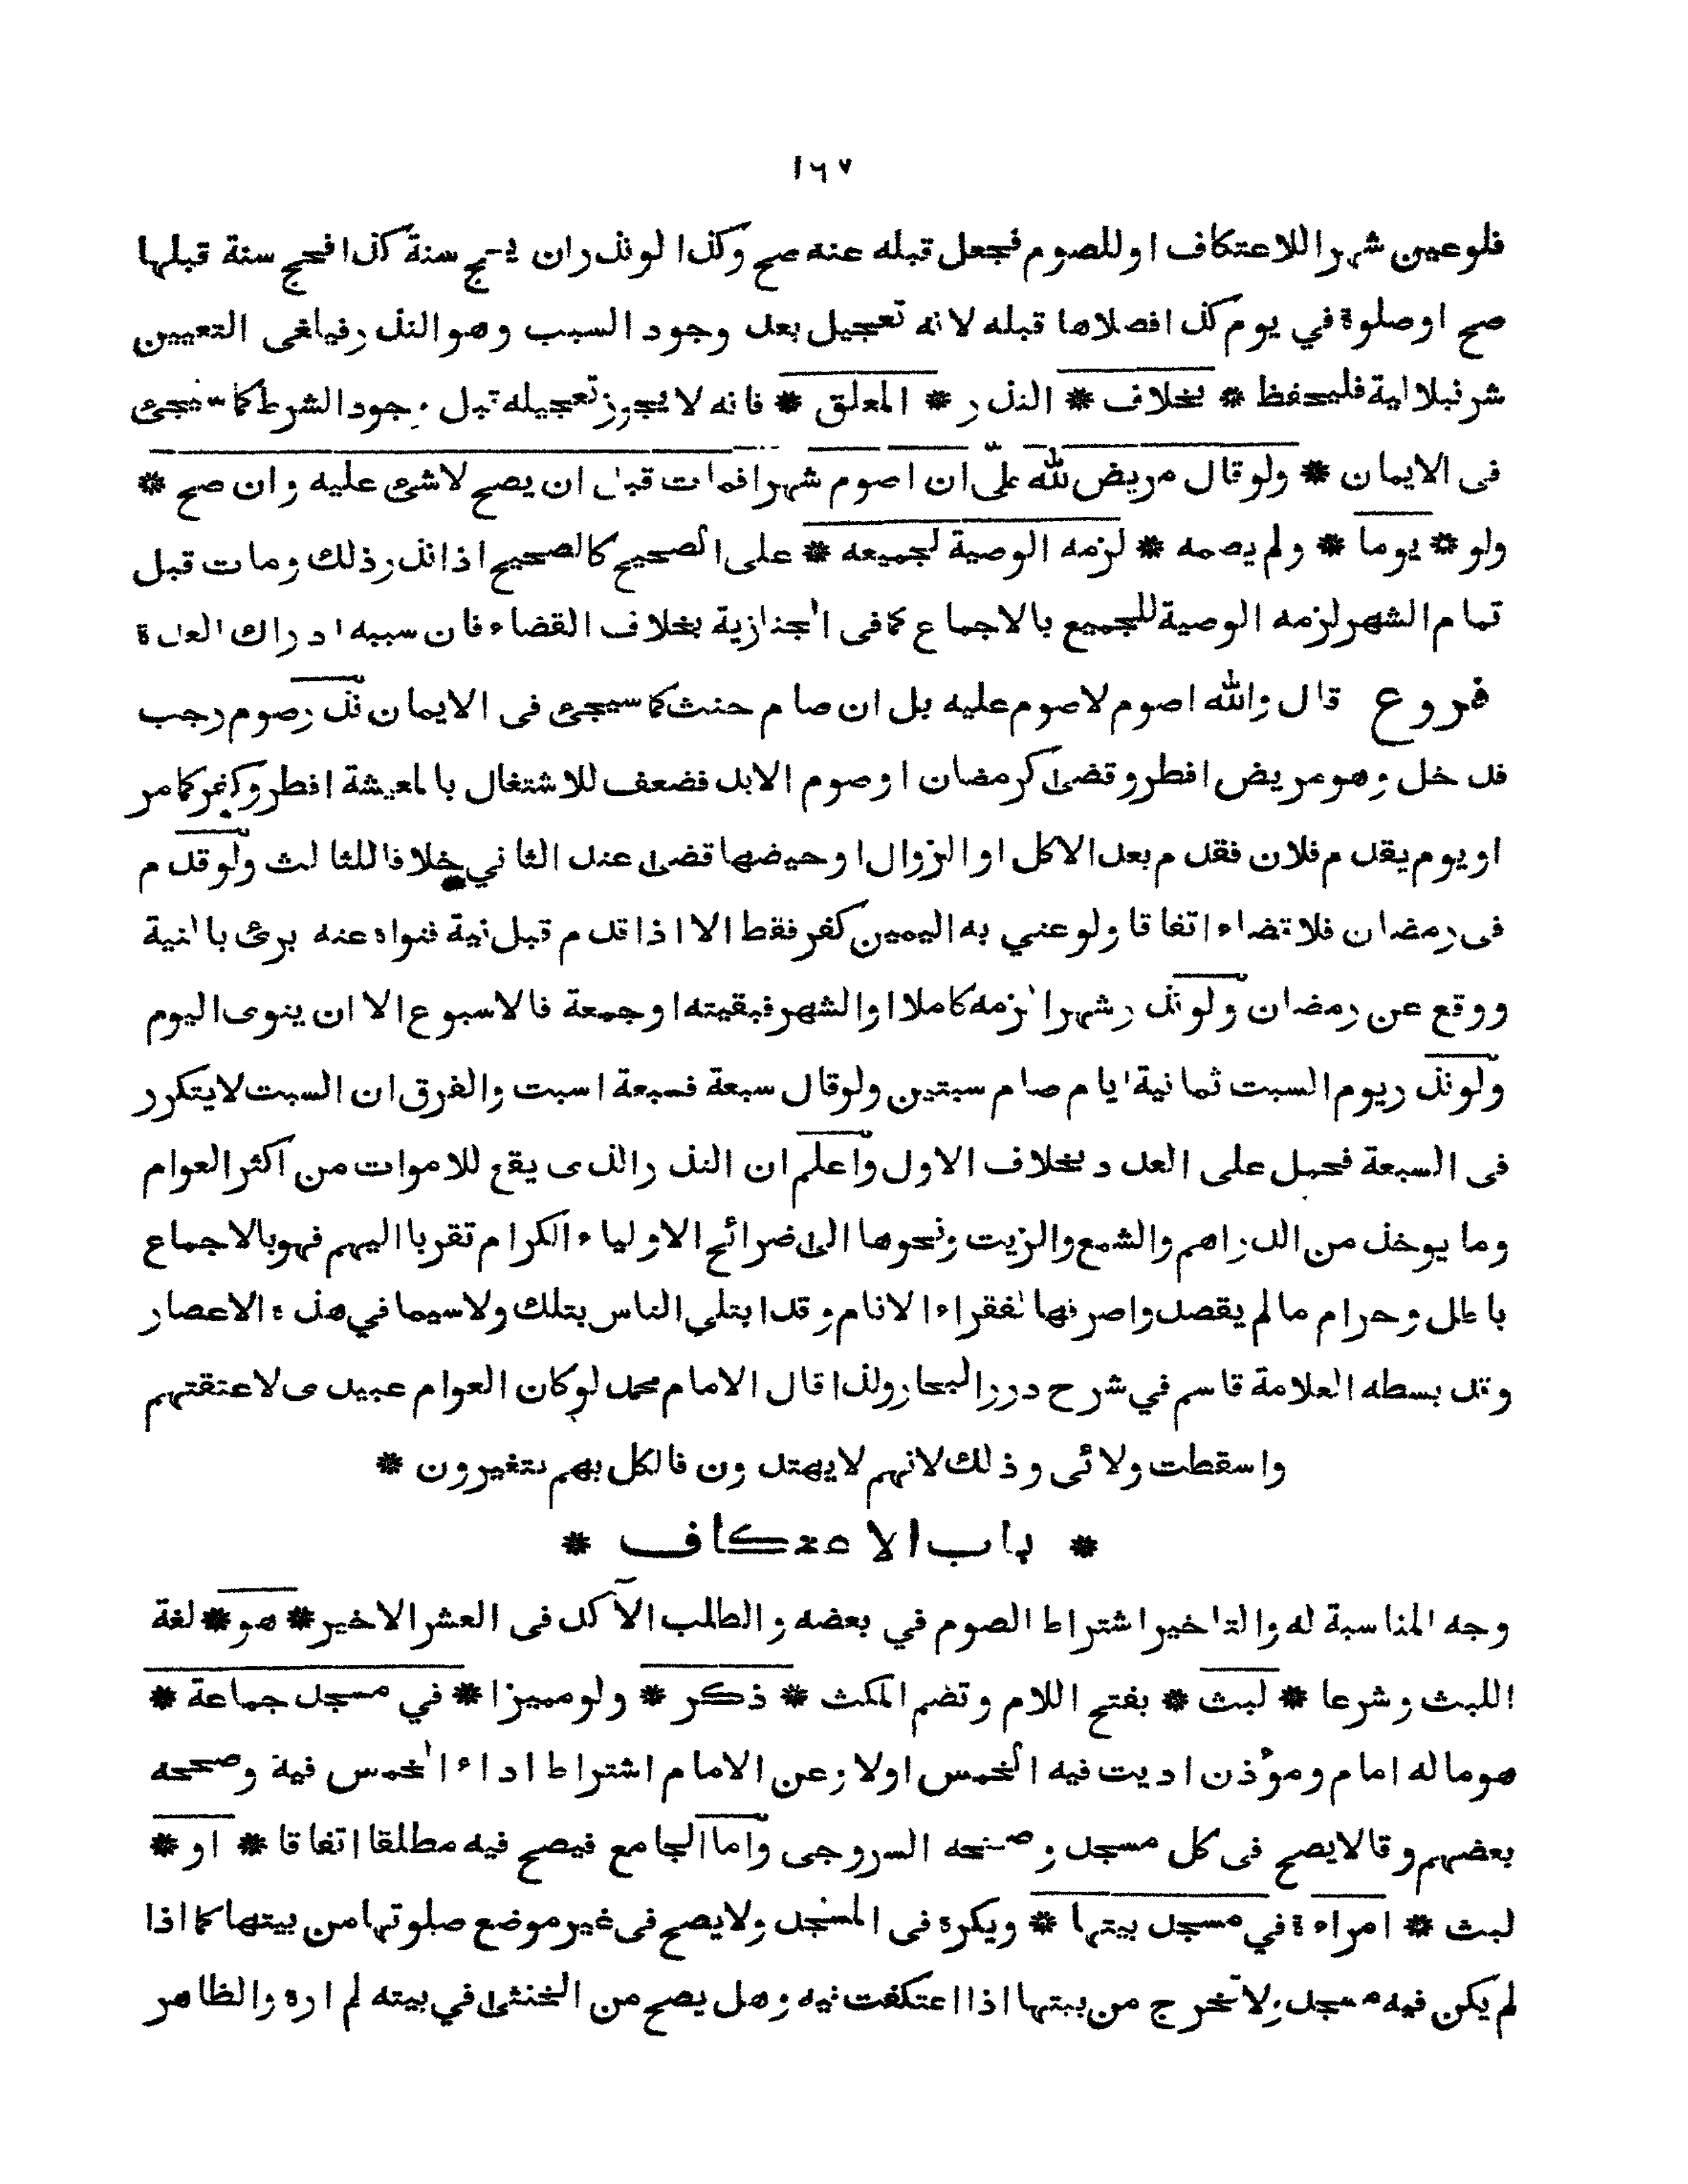 ١٦٧
فلو عين شهرا للاعتكاف او للصوم فعجل قبله عنه صح وكذا لو نذر ان يحج سنة كذا فحج سنة قبلها
صح او صلوة في يوم كذا فصلاها قبله لانه تعجيل بعد وجود السبب وهو النذر فيلغى التعيين
شرنبلالية فليحفظ * بخلاف * النذر * المعلق * فانه لا يجوز تعجيله قبل وجود الشرط كما سيجئ
فى الايمان * ولو قال مريض لله علىّ ان اصوم شهرا فمات قبل ان يصح لا شئ عليه وان صح *
ولو * يوما * ولم يصمه * لزمه الوصية لجميعه * على الصحيح كالصحيح اذا نذر ذلك ومات قبل
تمام الشهر لزمه الوصية للجميع بالاجماع كما فى الخبازية بخلاف القضاء فان سببه ادراك العدة
فروع قال والله اصوم لا صوم عليه بل ان صام حنث كما سيجئ فى الايمان نذر صوم رجب
فدخل وهو مريض افطر وقضى كرمضان او صوم الابد فضعف للاشتغال بالمعيشة افطر وكفر كما مر
او يوم يقدم فلان فقدم بعد الاكل او الزوال او حيضها قضى عند الثاني خلافا للثالث ولو قدم
فى رمضان فلا قضاء اتفاقا ولو عني به اليمين كفر فقط الا اذا قدم قبل نية فنواه عنه برئ بالنية
ووقع عن رمضان ولو نذر شهرا لزمه كاملا او الشهر فبقيته او جمعة فالاسبوع الا ان ينوى اليوم
ولو نذر يوم السبت ثمانية ايام صام سبتين ولو قال سبعة فسبعة اسبت والفرق ان السبت لا يتكرر
فى السبعة فحمل على العدد بخلاف الاول واعلم ان النذر الذى يقع للاموات من اكثر العوام
وما يوخذ من الدراهم والشمع والزيت ونحوها الى ضرائح الاولياء الكرام تقربا اليهم فهو بالاجماع
باطل وحرام ما لم يقصدوا صرفها لفقراء الانام وقد ابتلي الناس بتلك ولا سيما في هذه الاعصار
وقد بسطه العلامة قاسم في شرح درر البحار ولذا قال الامام محمد لو كان العوام عبيدى لاعتقتهم
واسقطت ولائى وذلك لانهم لا يهتدون فالكل بهم يتغيرون *
* باب الاعتكاف *
وجه المناسبة له والتاخير اشتراط الصوم في بعضه والطلب الآكد فى العشر الاخير * هو * لغة
اللبث وشرعا * لبث * بفتح اللام وتضم المكث * ذكر * ولو مميزا * في مسجد جماعة *
هو ما له امام ومؤذن اديت فيه الخمس اولا وعن الامام اشتراط اداء الخمس فية وصححه
بعضهم وقالا يصح فى كل مسجد وصححه السروجى واما الجامع فيصح فيه مطلقا اتفاقا * او *
لبث * امراءة في مسجد بيتها * ويكره فى المسجد ولا يصح فى غير موضع صلوتها من بيتها كما اذا
لم يكن فيه مسجد ولا تخرج من بيتها اذا اعتكفت فيه وهل يصح من الخنثى في بيته لم اره والظاهر